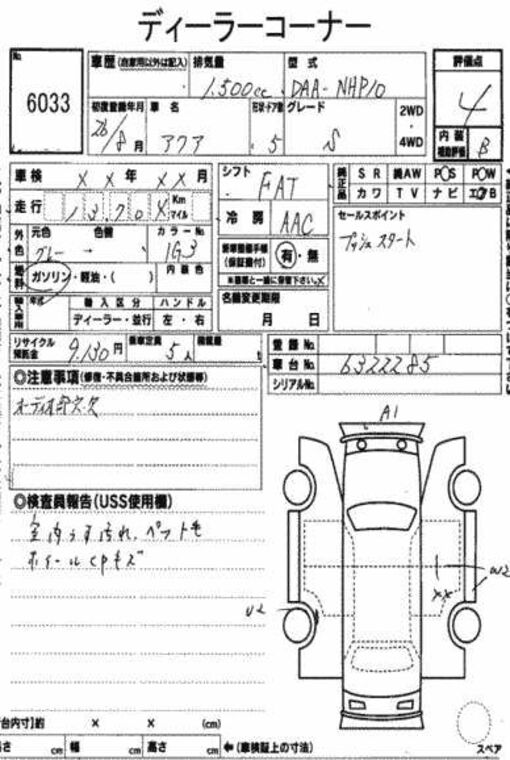 ディーラーコーナー
No.
6033
車歴 (自家用以外は記入)
排気量
1.500cc
型式
DAA-NHP10
評価点
4
初度登録年月
26/8月
車名
アクア
形状・ドア数
5
グレード
S
2WD
・
4WD
内装
補助評価
B
車検 X X 年 X X 月
シフト
FAT
純正品
SR 純AW PS PW
カワ TV ナビ エアB
走行 13,70 Km
マイル
冷房
AAC
セールスポイント
プッシュスタート
外色
元色
グレー
色替
→
カラーNo.
1G3
内装色
燃料
ガソリン・軽油・( )
新車整備手帳
(保証書付)
有・無
※書類と一緒に保管下さい。
輸入車用
年式
輸入区分
ハンドル
ディーラー・並行
左・右
名義変更期限
月 日
リサイクル
預託金
9,130円
乗車定員
5人
積載量
t
登録No.
車台No.
6322285
シリアルNo.
◎注意事項(修復・不具合箇所および状態等)
オーディオ部欠欠
A1
◎検査員報告(USS使用欄)
室内うす汚れ、ペット毛
ホイールCPキズ
U2
XX
W2
【荷台内寸】約 × × (cm)
長さ cm 幅 cm 高さ cm ←(車検証上の寸法)
スペア